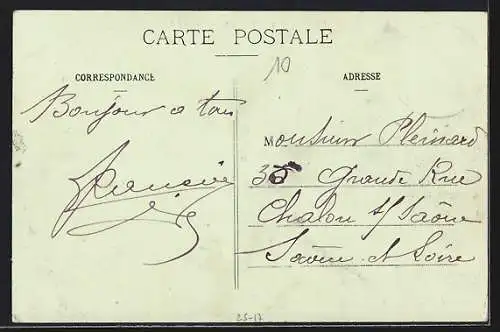 CARTE POSTALE
10
CORRESPONDANCE
ADRESSE
Bonjour a tous
Monsieur Pleinard
35 Grande Rue
Chalon s/ Saône
Saône et Loire
25-17